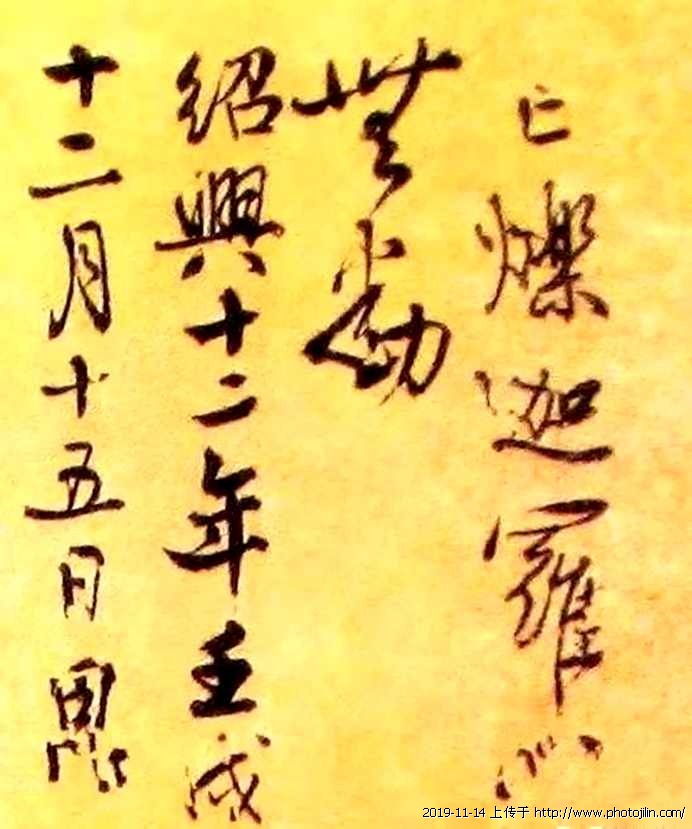 亡爍迦羅心
無動
紹興十二年壬戌
十二月十五日
2019-11-14 上传于 http://www.photojilin.com/